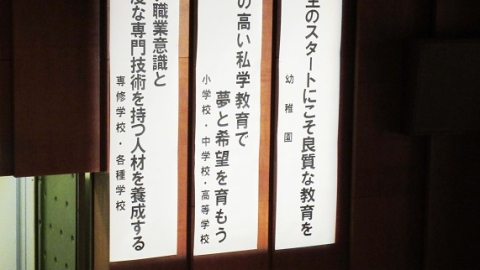 生のスタートにこそ良質な教育を
幼稚園
の高い私学教育で
夢と希望を育もう
小学校・中学校・高等学校
職業意識と
度な専門技術を持つ人材を養成する
専修学校・各種学校